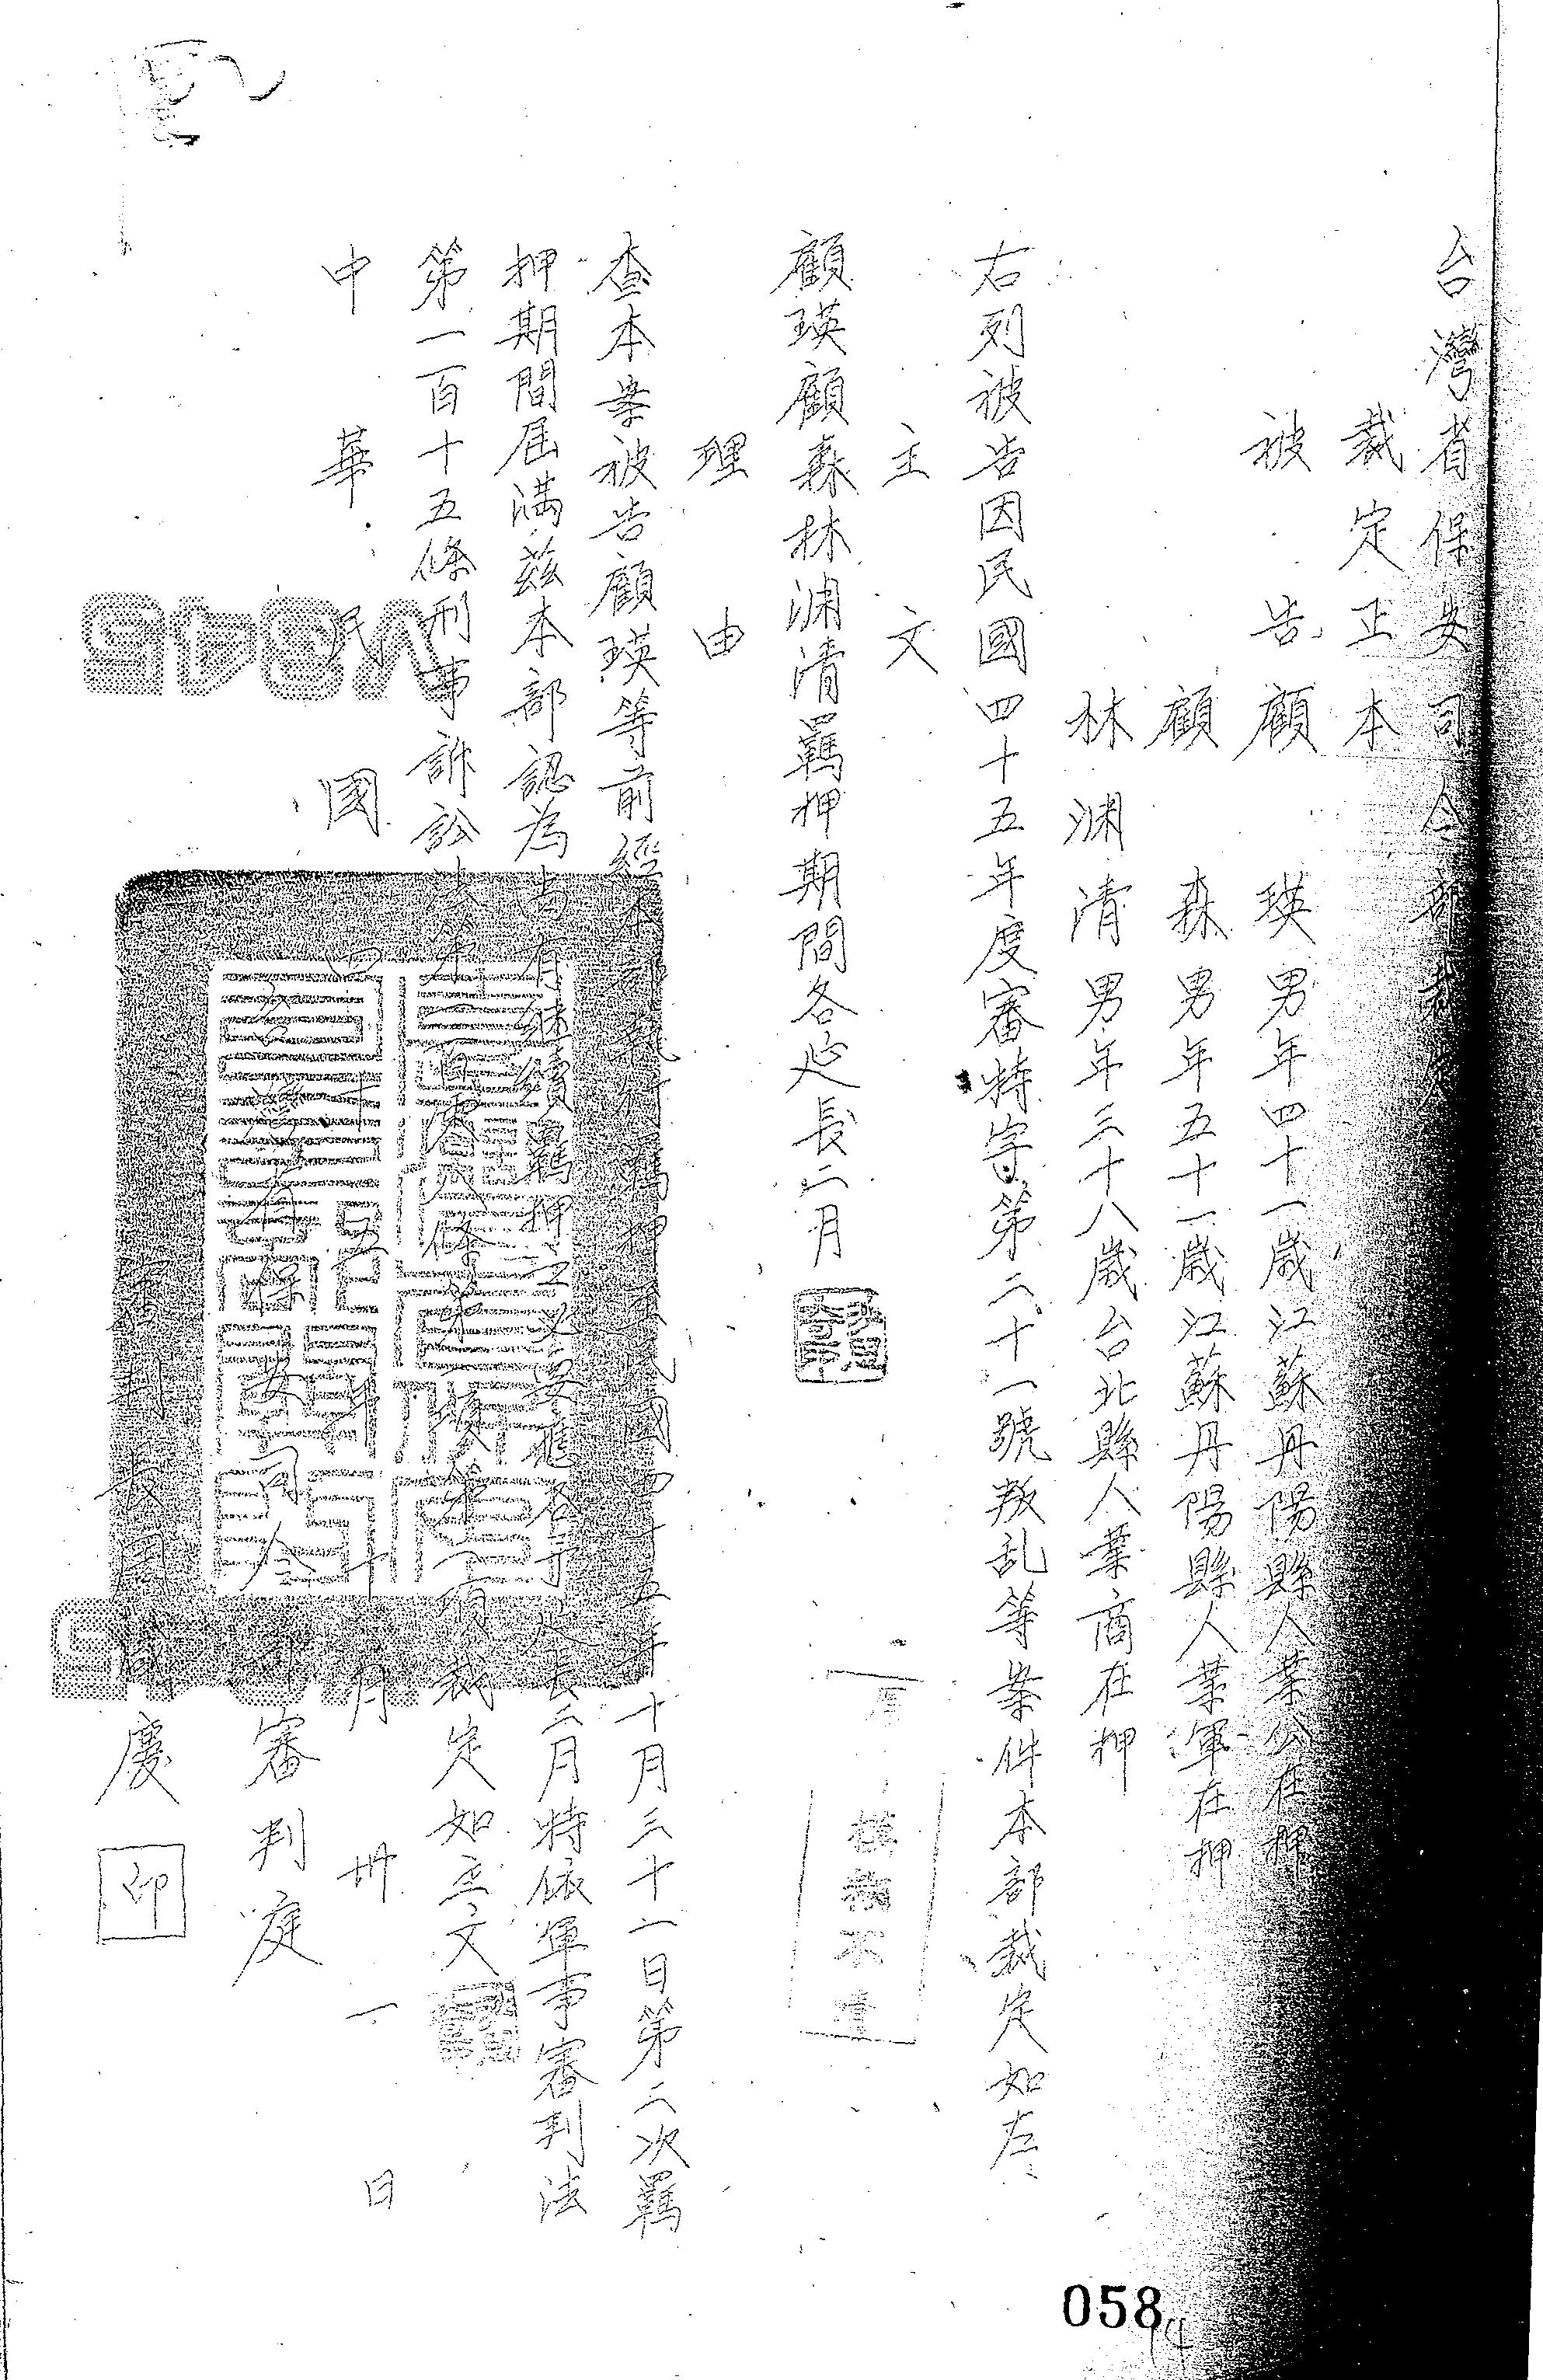 台灣省保安司令部裁定
裁定正本
被告 顧瑛 男年四十一歲江蘇丹陽縣人業公在押
顧森 男年五十一歲江蘇丹陽縣人業軍在押
林渊清 男年三十八歲台北縣人業商在押
右列被告因民國四十五年度審特字第二十一號叛乱等案件本部裁定如左
主文
顧瑛顧森林渊清羈押期間各延長二月
理由
查本案被告顧瑛等前經本部裁定羈押至民國四十五年十月三十一日第二次羈
押期間屆滿茲本部認為尚有継續羈押之必要應各予延長二月特依軍事審判法
第一百十五條刑事訴訟法第一百零八條第二項後段第一項裁定如主文
中華民國四十五年十月卅一日
台灣省保安司令部審判庭
審判長周咸慶 印
058
14